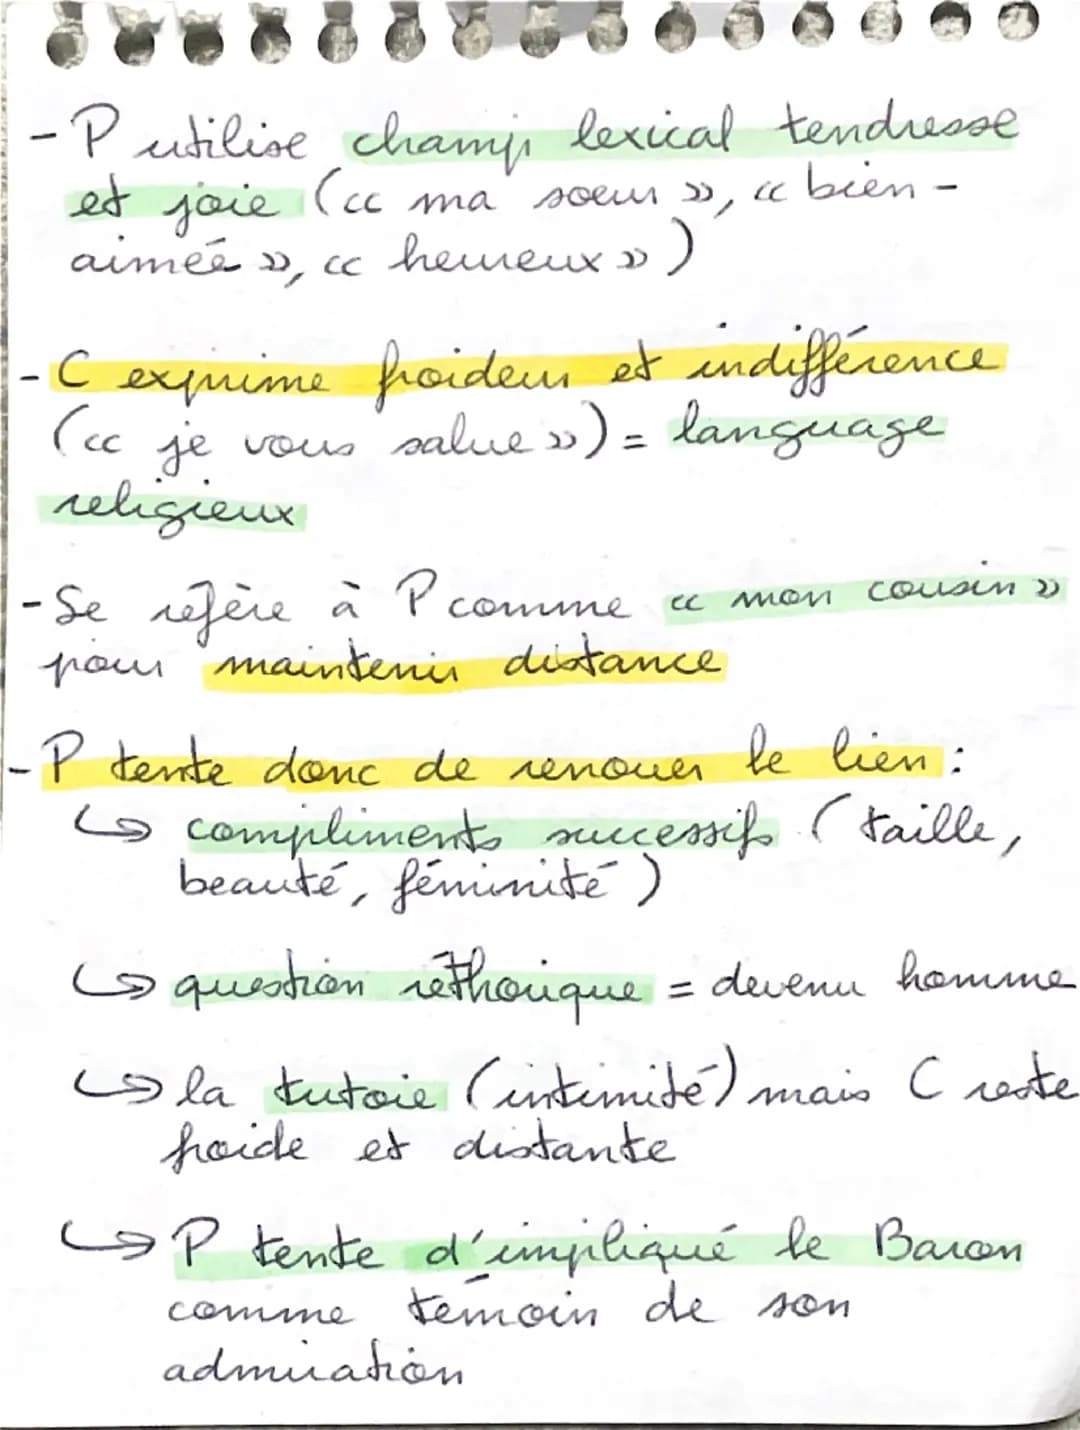 - P utilise champ lexical tendresse
et joie (« ma soeur », « bien-
aimée », « heureux »)
- C exprime froideur et indifférence
(« je vous salue ») = language
religieux
- Se réfère à P comme « mon cousin »
pour maintenir distance
- P tente donc de renouer le lien :
↳ compliments successifs (taille,
beauté, féminité)
↳ question réthorique = devenu homme
↳ la tutoie (intimité) mais C reste
froide et distante
↳ P tente d'impliqué le Baron
comme témoin de son
admiration